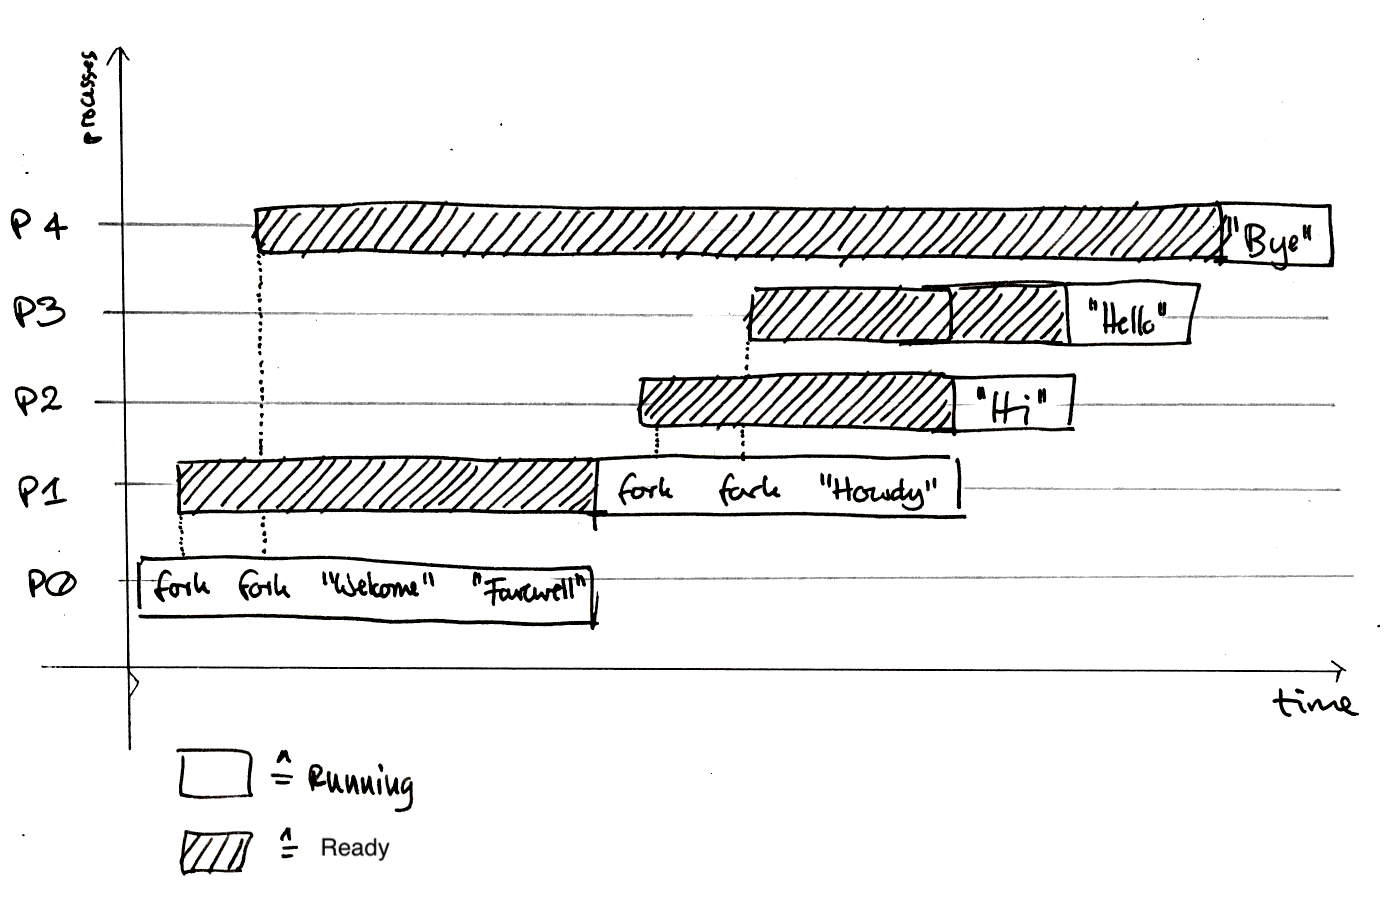 processes
P4
"Bye"
P3
"Hello"
P2
"Hi"
P1
fork fork "Howdy"
P0
fork fork "Welcome" "Farewell"
time
≙ Running
≙ Ready